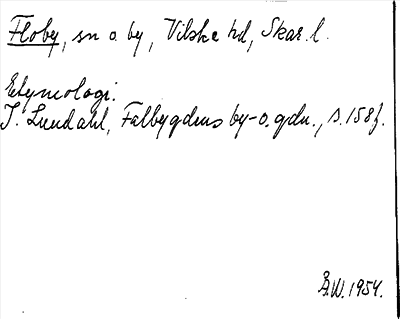 Floby, sn o by, Vilske hd, Skar. l.
Etymologi.
I. Lundahl, Falbygdens by- o. gdn., s. 158 f.
Å.W. 1954.